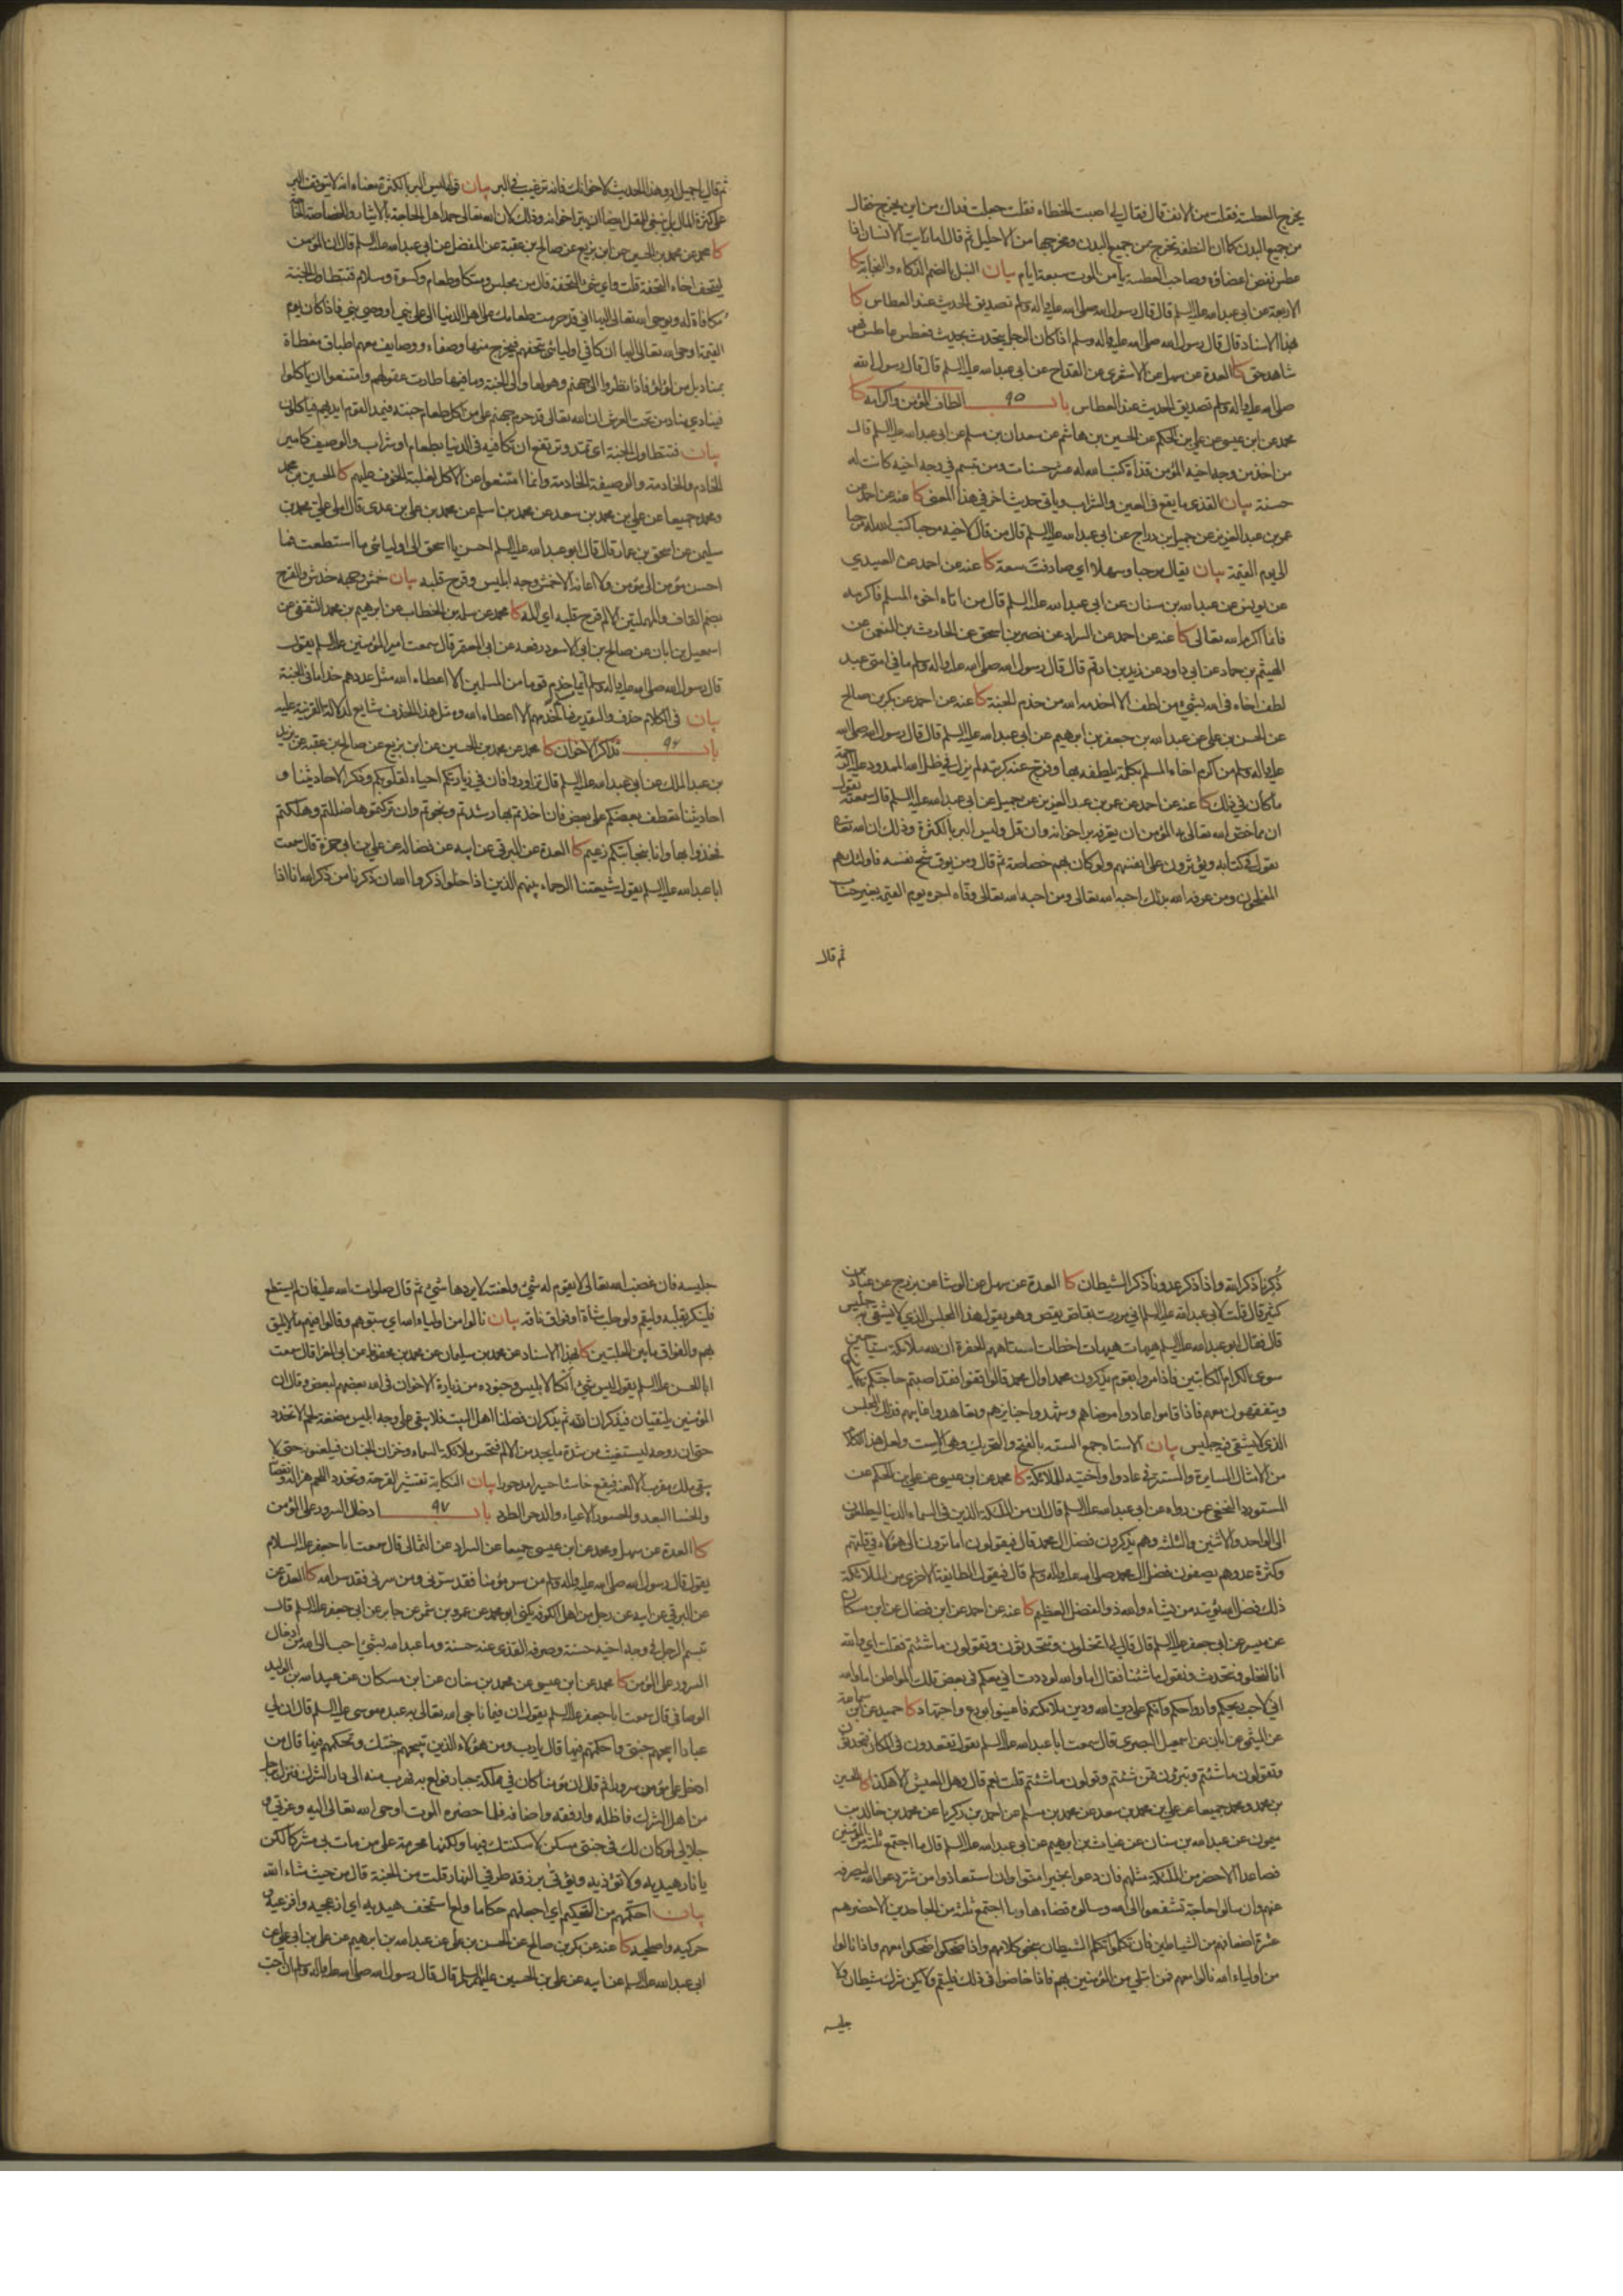 يخرج العطسة فقلت من الانف قال فقال لى اصبت الخطاء فقلت جعلت فداك من اين يخرج فقال
من جميع البدن كما ان النطفة تخرج من جميع البدن ومخرجها من الاحليل ثم قال اما رايت الانسان اذا
عطس نفض اعضاؤه وصاحب العطسة يأمن الموت سبعة ايام بيان النبل بالضم الذكاء والنجابة كا
الاربعة عن ابى عبد الله عليه السلم قال قال رسول الله صلى الله عليه واله وسلم تصديق الحديث عند العطاس كا
بهذا الاسناد قال قال رسول الله صلى الله عليه واله وسلم اذا كان الرجل يتحدث بحديث فعطس عاطس فهو
شاهد حق كا العدة عن سهل عن الاشعرى عن القداح عن ابى عبد الله عليه السلم قال قال رسول الله
صلى الله عليه واله وسلم تصديق الحديث عند العطاس باب ٩٥ الطاف المؤمن واكرامه كا
محمد عن ابن عيسى عن على بن الحكم عن الحسين بن هاشم عن سعدان بن مسلم عن ابى عبد الله عليه السلم قال
من اخذ من وجه اخيه المؤمن قذاة كتب الله له عشر حسنات ومن تبسم فى وجه اخيه كانت له
حسنة بيان القذى ما يقع فى العين والشراب وياتى حديث اخر فى هذا المعنى كا عنه عن احمد عن
عمر بن عبد العزيز عن جميل بن دراج عن ابى عبد الله عليه السلم قال من قال لاخيه مرحبا كتب الله له مرحبا
الى يوم القيمة بيان يقال مرحبا وسهلا اى صادفت سعة كا عنه عن احمد عن العبيدى
عن يونس عن عبد الله بن سنان عن ابى عبد الله عليه السلم قال من اتاه اخوه المسلم فاكرمه
فانما اكرم الله تعالى كا عنه عن احمد عن السراد عن نصر بن اسحق عن الحارث بن النعمن عن
الهيثم بن حماد عن ابى داود عن زيد بن ارقم قال قال رسول الله صلى الله عليه واله وسلم ما فى امتى عبد
لطف اخاه فى الله بشئ من لطف الا اخدمه الله من خدم الجنة كا عنه عن احمد عن بكر بن صالح
عن الحسن بن على عن عبد الله بن جعفر بن ابرهيم عن ابى عبد الله عليه السلم قال قال رسول الله صلى الله
عليه واله وسلم من اكرم اخاه المسلم بكلمة يلطفه بها وفرج عنه كربته لم يزل فى ظل الله الممدود عليه الرحمة
ما كان فى ذلك كا عنه عن احمد عن عمر بن عبد العزيز عن جميل عن ابى عبد الله عليه السلم قال سمعته يقول
ان مما خص الله تعالى به المؤمن ان يعرفه بر اخوانه وان قل وليس البر بالكثرة وذلك ان الله تعالى
يقول فى كتابه ويؤثرون على انفسهم ولو كان بهم خصاصة ثم قال ومن يوق شح نفسه فاولئك هم
المفلحون ومن عرفه الله بذلك احبه الله تعالى ومن احبه الله تعالى وفاه اجره يوم القيمة بغير حساب
ثم قال
ثم قال يا جميل ارو هذا الحديث لاخوانك فانه ترغيب فى البر بيان قوله ليس البر بالكثرة معناه انه لا يتوقف البر
على كثرة المال بل ينبغى للمقل ايضا ان يبر اخوانه وذلك لان الله تعالى حمد اهل الحاجة بالايثار والخصاصة الحاجة
كا محمد عن محمد بن الحسين عن ابن بزيع عن صالح بن عقبة عن المفضل عن ابى عبد الله عليه السلم قال ان المؤمن
ليتحف اخاه التحفة قلت واى شئ التحفة قال من مجلس ومتكا وطعام وكسوة وسلام فتتطاول الجنة
مكافاة له ويوحى الله تعالى اليها انى قد حرمت طعامك على اهل الدنيا الا على نبى او وصى نبى فاذا كان يوم
القيمة اوحى الله تعالى اليها ان كافى اوليائى بتحفهم فيخرج منها وصفاء ووصايف معهم اطباق مغطاة
بمناديل من لؤلؤ فاذا نظروا الى جهنم وهولها والى الجنة وما فيها طارت عقولهم وامتنعوا ان ياكلوا
فينادى مناد من تحت العرش ان الله تعالى قد حرم جهنم على من اكل طعام جنته فيمد القوم ايديهم فياكلون
بيان فتتطاول الجنة اى تمتد وترتفع ان تكافيه فى الدنيا بطعام او شراب والوصيف كامير
الخادم والخادمة والوصيفة الخادمة وانما امتنعوا عن الاكل لغلبة الخوف عليهم كا الحسين بن محمد
ومحمد جميعا عن على بن محمد بن سعد عن محمد بن اسلم عن محمد بن على بن عدى قال املى على محمد بن
سليمن عن اسحق بن عمار قال قال ابو عبد الله عليه السلم احسن يا اسحق الى اوليائى ما استطعت فما
احسن مؤمن الى مؤمن ولا اعانه الا خمش وجه ابليس وقرح قلبه بيان خمش وجهه خدش والقرح
بضم القاف والمهملتين الالم قرح قلبه اى المه كا محمد عن سلمة بن الخطاب عن ابرهيم بن محمد الثقفى عن
اسمعيل بن ابان عن صالح بن ابى الاسود رفعه عن ابى المعتمر قال سمعت امير المؤمنين عليه السلم يقول
قال رسول الله صلى الله عليه واله وسلم ايما مسلم خدم قوما من المسلمين الا اعطاه الله مثل عددهم خداما فى الجنة
بيان فى الكلام حذف والتقدير ما خدمهم الا اعطاه الله ومثل هذا الحذف شايع لدلالة القرينة عليه
باب ٩٦ تذاكر الاخوان كا محمد عن محمد بن الحسين عن ابن بزيع عن صالح بن عقبة عن يزيد
بن عبد الملك عن ابى عبد الله عليه السلم قال تزاوروا فان فى زيارتكم احياء لقلوبكم وذكرا لاحاديثنا و
احاديثنا تعطف بعضكم على بعض فان اخذتم بها رشدتم ونجوتم وان تركتموها ضللتم وهلكتم
فخذوا بها وانا بنجاتكم زعيم كا العدة عن البرقى عن ابيه عن فضالة عن على بن ابى حمزة قال سمعت
ابا عبد الله عليه السلم يقول شيعتنا الرحماء بينهم الذين اذا خلوا ذكروا الله ان ذكرنا من ذكر الله انا اذا
ذكرنا ذكر الله واذا ذكر عدونا ذكر الشيطان كا العدة عن سهل عن الوشا عن بزرج عن عباد بن
كثير قال قلت لابى عبد الله عليه السلم انى مررت بقاص يقص وهو يقول هذا المجلس الذى لا يشقى به جليس
قال فقال ابو عبد الله عليه السلم هيهات هيهات اخطات استاههم الحفرة ان لله ملائكة سياحين
سوى الكرام الكاتبين فاذا مروا بقوم يذكرون محمدا وال محمد قالوا قفوا فقد اصبتم حاجتكم
ويتفقهون معهم فاذا قاموا عادوا مرضاهم وشهدوا جنايزهم وتعاهدوا غايبهم فذلك المجلس
الذى لا يشقى فيه جليس بيان الاستاه جمع السته بالفتح والتحريك وهى الاست ولعل هذا الكلام
من الامثال السايرة والمستتر فى عادوا واختيه للملائكة كا محمد عن ابن عيسى عن على بن الحكم عن
المستورد النخعى عن رواه عن ابى عبد الله عليه السلم قال ان من الملائكة الذين فى السماء الدنيا ليطلعون
الى الواحد والاثنين والثلثة وهم يذكرون فضل ال محمد قال فيقولون اما ترون الى هؤلاء فى قلتهم
وكثرة عدوهم يصفون فضل ال محمد صلى الله عليه واله وسلم قال فيقول الطايفة الاخرى من الملائكة
ذلك فضل الله يؤتيه من يشاء والله ذو الفضل العظيم كا عنه عن احمد عن ابن فضال عن ابن مسكان
عن ميسر عن ابى جعفر عليه السلم قال قال لى اتخلون وتتحدثون وتقولون ما شئتم فقلت اى والله
انا لنخلو ونتحدث ونقول ما شئنا فقال اما والله لوددت انى معكم فى بعض تلك المواطن اما والله
انى لاحب ريحكم وارواحكم وانكم على دين الله ودين ملائكته فاعينوا بورع واجتهاد كا حميد عن ابن سماعة
عن الميثمى عن ابان عن اسمعيل البصرى قال سمعت ابا عبد الله عليه السلم يقول تقعدون فى المكان فتحدثون
وتقولون ما شئتم وتبرؤن ممن شئتم وتولون ما شئتم قلت نعم قال وهل العيش الا هكذا كا الحسين
بن محمد ومحمد جميعا عن على بن محمد بن سعد عن محمد بن مسلم عن احمد بن زكريا عن محمد بن خالد بن
ميمون عن عبد الله بن سنان عن غياث بن ابرهيم عن ابى عبد الله عليه السلم قال ما اجتمع ثلثة من المؤمنين
فصاعدا الا حضر من الملائكة مثلهم فان دعوا بخير امنوا وان استعاذوا من شر دعوا الله ليصرفه
عنهم وان سالوا حاجة تشفعوا الى الله وسالوه قضاءها وما اجتمع ثلثة من الجاحدين الا حضرهم
عشرة اضعافهم من الشياطين فان تكلموا تكلم الشيطان بنحو كلامهم واذا ضحكوا ضحكوا معهم واذا نالوا
من اولياء الله نالوا معهم فمن ابتلى من المؤمنين بهم فاذا خاضوا فى ذلك فليقم ولا يكن شرك شيطان ولا
جليسه
جليسه فان غضب الله تعالى لا يقوم له شئ ولعنته لا يردها شئ ثم قال صلوات الله عليه فان لم يستطع
فلينكر بقلبه وليقم ولو حلب شاة او فواق ناقة بيان نالوا من اولياء الله اى سبوهم وقالوا فيهم ما لا يليق
بهم والفواق ما بين الحلبتين كا بهذا الاسناد عن محمد بن سليمان عن محمد بن محفوظ عن ابى المغرا قال سمعت
ابا الحسن عليه السلم يقول ليس شئ انكا لابليس وجنوده من زيارة الاخوان فى الله بعضهم لبعض وقال ان
المؤمنين يلتقيان فيذكران الله ثم يذكران فضلنا اهل البيت فلا يبقى على وجه ابليس مضغة لحم الا تخدد
حتى ان روحه ليستغيث من شدة ما يجد من الالم فتحس ملائكة السماء وخزان الجنان فيلعنونه حتى لا
يبقى ملك مقرب الا لعنه فيقع خاسئا حسيرا مدحورا بيان النكاية تقشير القرحة وتخدد اللحم هزاله ونقصانه
والخسا البعد والحسور الاعياء والدحر الطرد باب ٩٧ ادخال السرور على المؤمن
كا العدة عن سهل ومحمد عن ابن عيسى جميعا عن السراد عن الثمالى قال سمعت ابا جعفر عليه السلام
يقول قال رسول الله صلى الله عليه واله وسلم من سر مؤمنا فقد سرنى ومن سرنى فقد سر الله كا العدة عن
عن البرقى عن ابيه عن رجل من اهل الكوفة يكنى ابو محمد عن عمرو بن شمر عن جابر عن ابى جعفر عليه السلم قال
تبسم الرجل فى وجه اخيه حسنة وصرفه القذى عنه حسنة وما عبد الله بشئ احب الى الله من ادخال
السرور على المؤمن كا محمد عن ابن عيسى عن محمد بن سنان عن ابن مسكان عن عبيد الله بن الوليد
الوصافى قال سمعت ابا جعفر عليه السلم يقول ان فيما ناجى الله تعالى به عبده موسى عليه السلم قال ان لى
عبادا ابيحهم جنتى واحكمهم فيها قال يا رب ومن هؤلاء الذين تبيحهم جنتك وتحكمهم فيها قال من
ادخل على مؤمن سرورا ثم قال ان مؤمنا كان فى مملكة جبار فولع به فهرب منه الى دار الشرك فنزل برجل
من اهل الشرك فاظله وارفقه واضافه فلما حضره الموت اوحى الله تعالى اليه وعزتى و
جلالى لو كان لك فى جنتى مسكن لاسكنتك فيها ولكنها محرمة على من مات بى مشركا لكن
يا نار هيديه ولا تؤذيه ويؤتى برزقه طرفى النهار قلت من الجنة قال من حيث شاء الله
بيان احكمهم من التحكيم اى اجعلهم حكاما ولع استخف هيديه اى ازعجيه وافزعيه و
حركيه واصلحيه كا عنه عن بكر بن صالح عن الحسن بن على عن عبد الله بن ابرهيم عن على بن ابى على عن
ابى عبد الله عليه السلم عن ابيه عن على بن الحسين عليهم السلم قال قال رسول الله صلى الله عليه واله وسلم ان احب